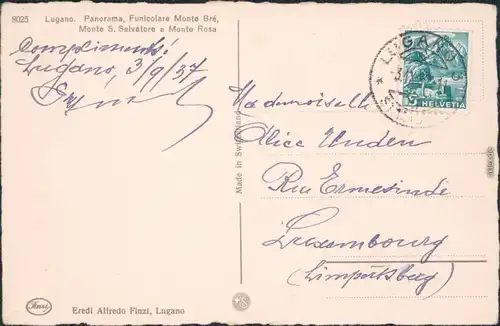 8025 Lugano. Panorama, Funicolare Monte Bré,
Monte S. Salvatore e Monte Rosa
Complimenti
Lugano, 3/9/37
Mademoiselle
Alice Unden
Rue Ermesinde
Luxembourg
(Limpertsberg)
Made in Switzerland
LUGANO
5
HELVETIA
Finzi
Eredi Alfredo Finzi, Lugano